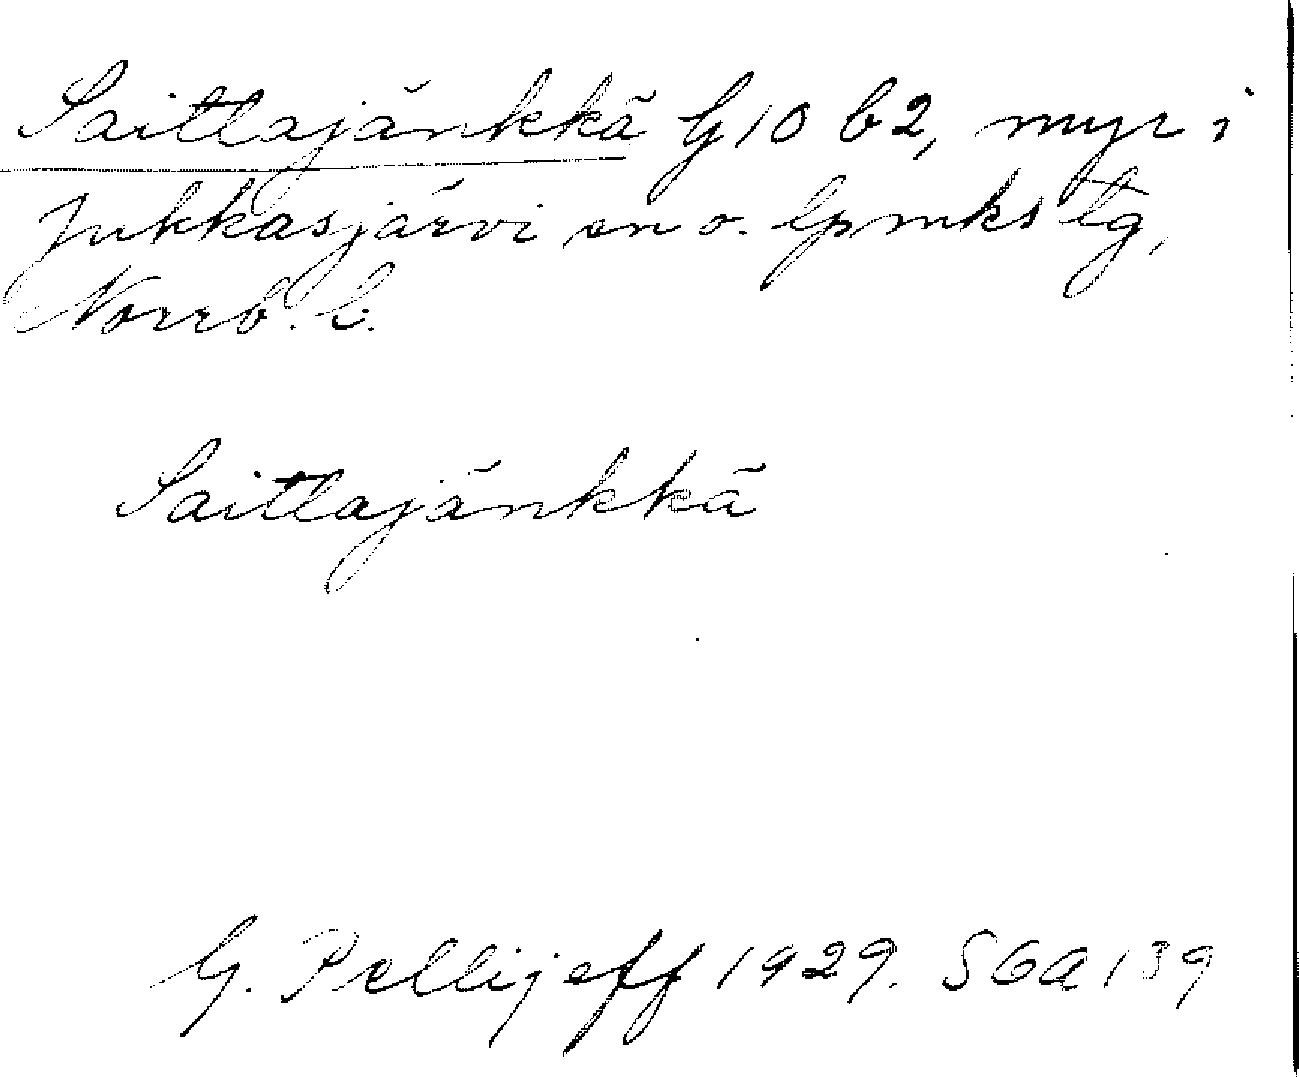 Saittajänkkä G 10 b2, myr i
Jukkasjärvi sn o. lpmks tg,
Norrb. l.
Saittajänkkä
G. Pellijeff 1929. SOA 139